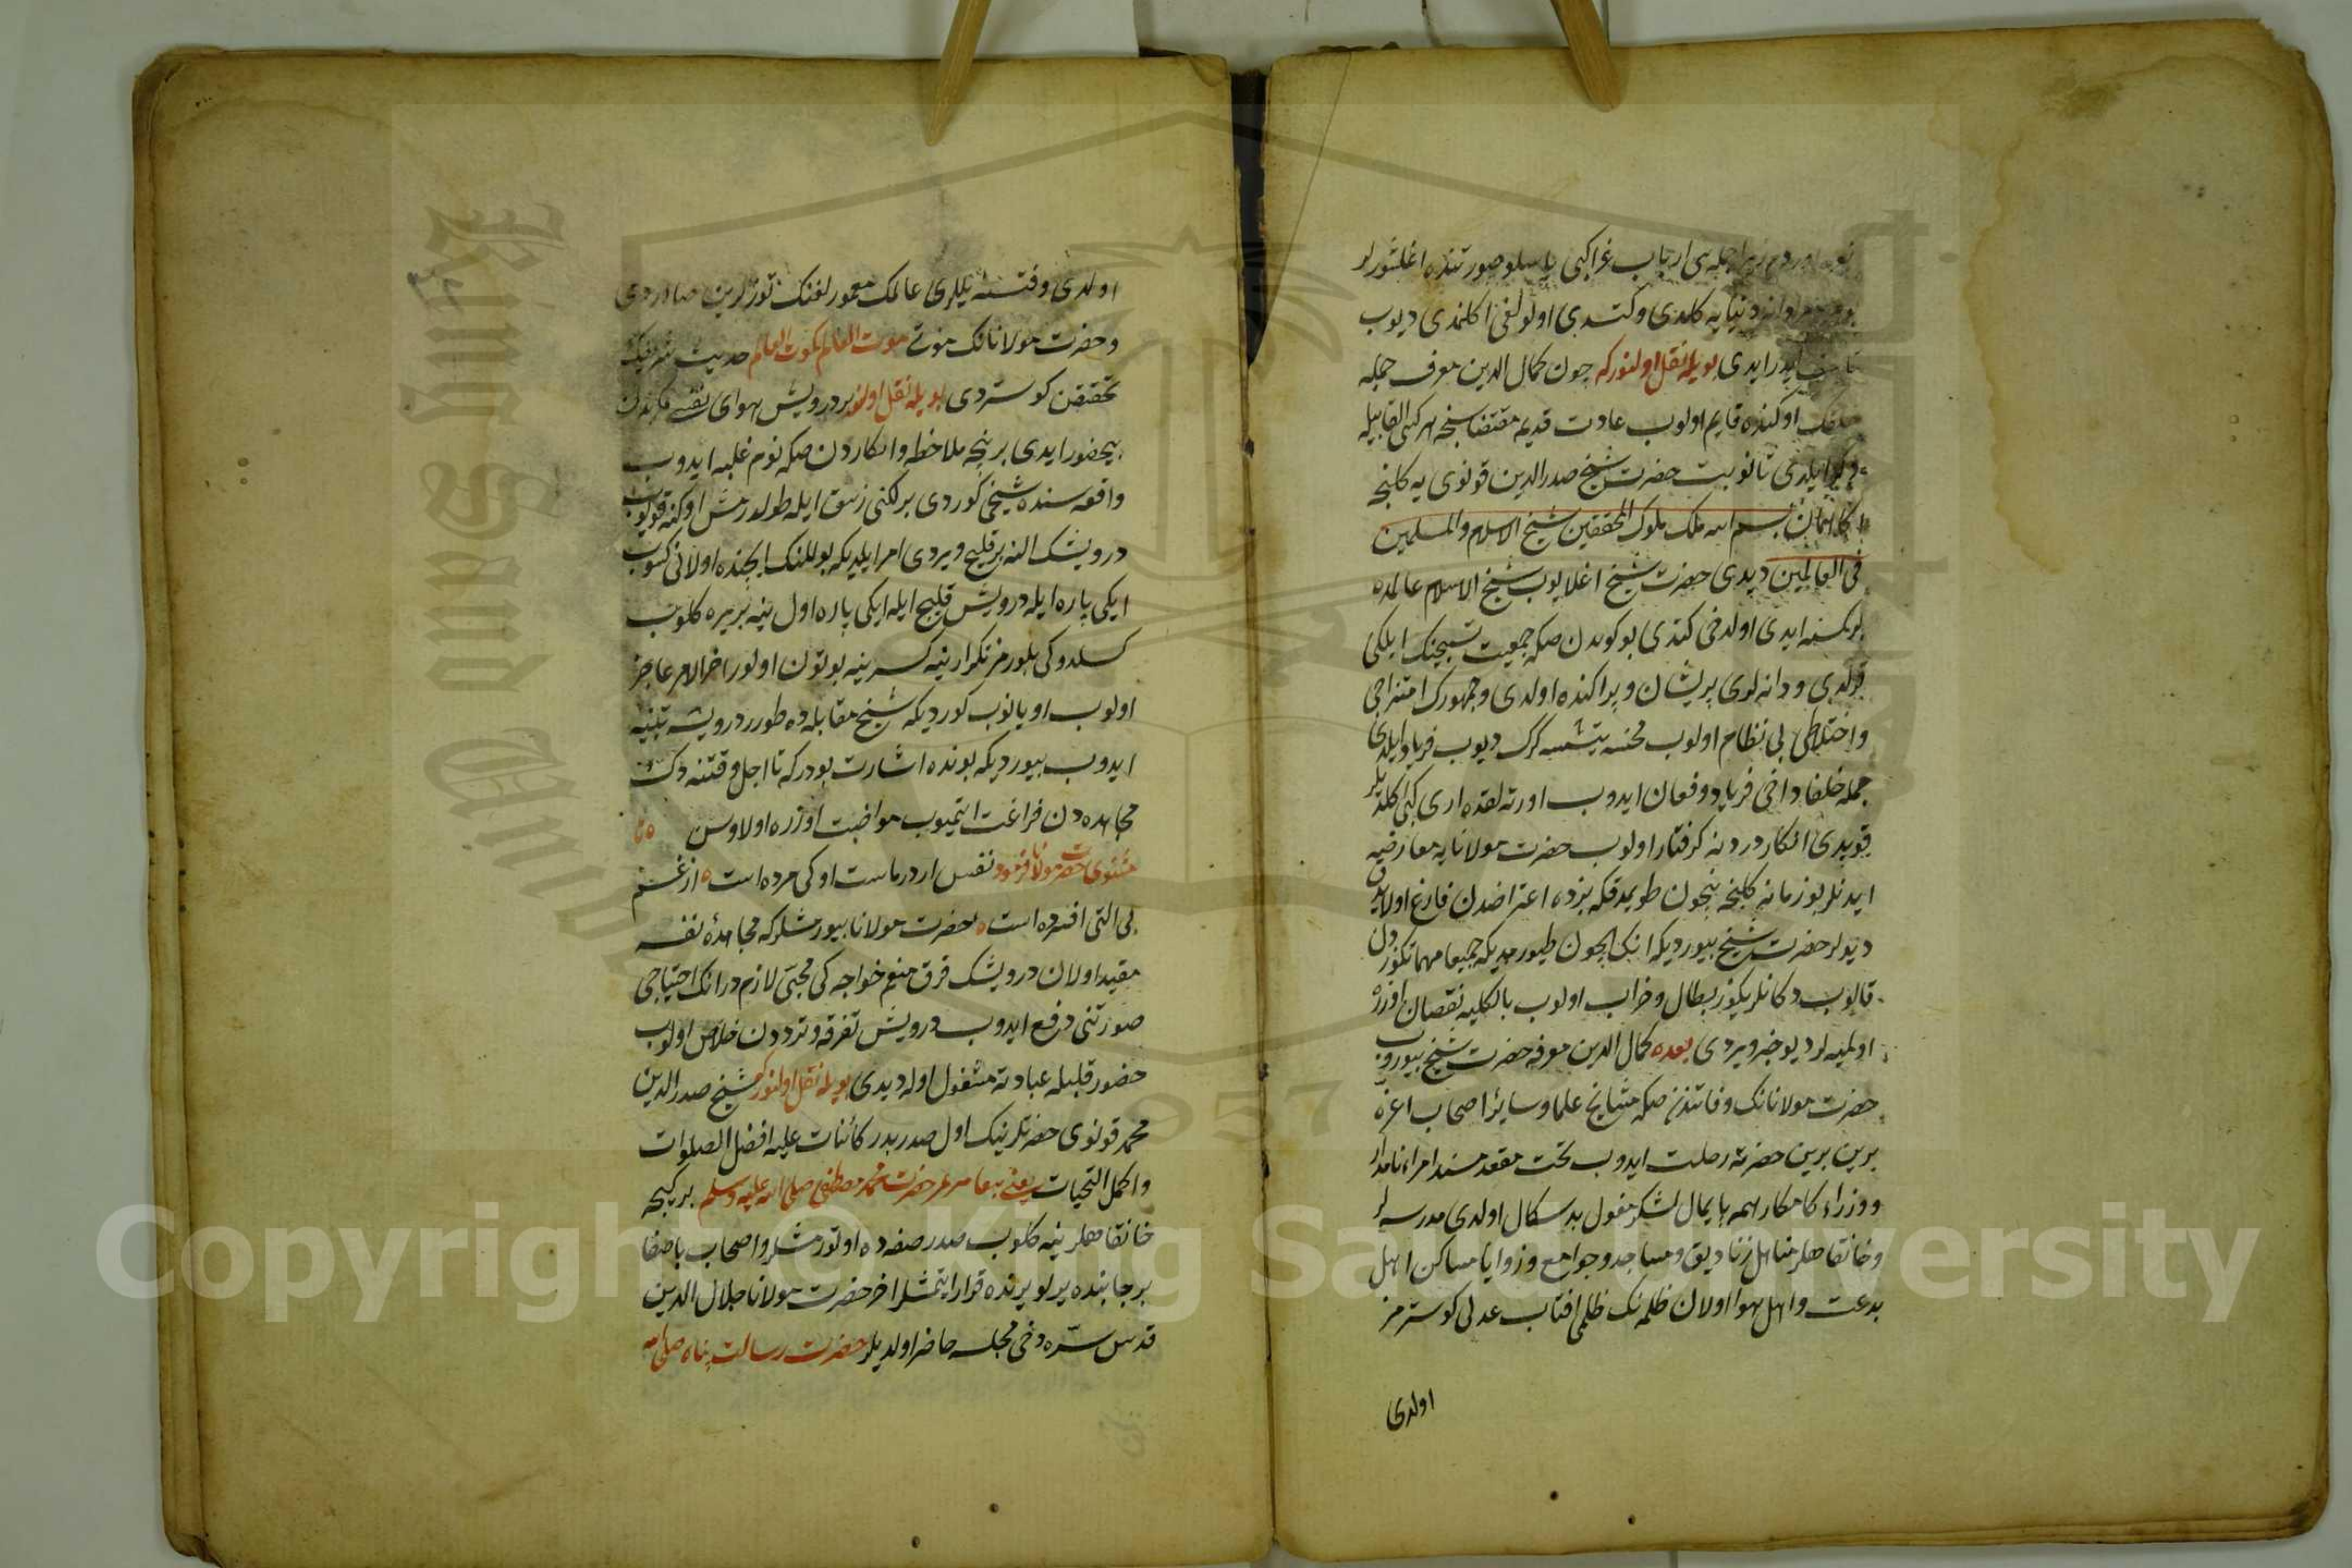 جمله سی ارباب غرا کبی یا سلو صورتنده اغلشورلر
دنیایه کلدی و کتدی اولولغی اکلنمدی دیوب
ایدر ایدی بویله نقل اولنور که چون کمال الدین معرف جمله
اوکنده قایم اولوب عادت قدیم مقتضاسنجه هر کشی القابیله
ایلدی تا نوبت حضرت شیخ صدر الدین قونوی یه کلنجه
بسم الله ملک ملوک المحققین شیخ الاسلام والمسلمین
فی العالمین دیدی حضرت شیخ اغلایوب شیخ الاسلام عالمده
بر کمسنه ایدی اولدخی کتدی بو کوندن صکره جمعیت تسبیحنک ایلکی
قرلدی و دانه لری پریشان و پراکنده اولدی و جمهورک امتزاجی
و اختلاطی بی نظام اولوب محنسه یتشمسه کرک دیوب فریاد ایلدی
جمله خلفا داخی فریاد و فغان ایدوب اورته لقده اری کبی کلدیلر
قویدی انکار دردینه کرفتار اولوب حضرت مولانایه معارضه
ایدنلر بو زمانه کلنجه نیچون طویمدقکه بزده اعتراضدن فارغ اولایدق
دیولر حضرت شیخ بیوردیکه انک ایچون طیورمدیکه جمیعا مهماتکوزدن
قالوب دکانلریکوز بطال و خراب اولوب بالکلیه نقصان اوزره
اولمیه لر دیو خبر ویردی بعده کمال الدین معرفه حضرت شیخ بیوروب
حضرت مولانانک وفاتندن صکره مشایخ علما و سایر اصحاب اعزه
برین برین حضرته رحلت ایدوب تخت مقعد مسند امراء نامدار
و وزراء کامکار همه پایمال لشکر مغول بد سکال اولدی مدرسه لر
و خانقاهلر مناهل زنادیق و مساجد و جوامع و زوایا مساکن اهل
بدعت و اهل هوا اولان ظلمه نک ظلمی افتاب عدلی کوسترمز
اولدی
اولدی و فتنه یللری عالمک معمورلغنک توزلرین صاوردی
و حضرت مولانانک موتی موت العالم کموت العالم حدیث شریفنک
تحققن کوستردی بویله نقل اولنور بر درویش هوای نفسی مکرندن
بیحضور ایدی بر نیجه ملاحظه و انکاردن صکره نوم غلبه ایدوب
واقعه سنده شیخی کوردی بر لکنی زئبق ایله طولدرمش اوکنه قویوب
درویشک النه بر قلیج ویردی امر ایلدیکه بو للنک ایچنده اولانی کسوب
ایکی پاره ایله درویش قلیج ایله ایکی پاره اول ینه بر یره کلوب
کسلدوکی بلورمز تکرار ینه کسر ینه بوتون اولور اخر الامر عاجز
اولوب اویانوب کوردیکه شیخ مقابله ده طورر درویشه تنبیه
ایدوب بیوردیکه بونده اشارت بودر که تا اجل وقتنه دک
مجاهده دن فراغت ایتمیوب مواضبت اوزره اولاوسن
مثنوی حضرت مولانا فرمود نفس اژدرهاست او کی مرده است از غم
بی التی افسرده است حضرت مولانا بیورمشلر که مجاهدهٔ نفسه
مقید اولان درویشک فرق منعم خواجه کی محبتی لازم در انک احتیاجی
صورتنی دفع ایدوب درویش تفرقه و ترددن خلاص اولوب
حضور قلبله عبادته مشغول اوله دیدی بویله نقل اولنور که شیخ صدر الدین
محمد قونوی حضرتلرینک اول صدر بدر کائنات علیه افضل الصلوات
و اکمل التحیات یعنی پیغامبر حضرت محمد مصطفی صلی الله علیه وسلم بر کیجه
خانقاهلرینه کلوب صدر صفه ده اوتورمشلر و اصحاب با صفا
بر جانبنده یرلو یرنده قرار ایتمشلر اخر حضرت مولانا جلال الدین
قدس سره دخی مجلسه حاضر اولدیلر حضرت رسالت پناه صلی
Copyright © King Saud University
King Saud University
1957